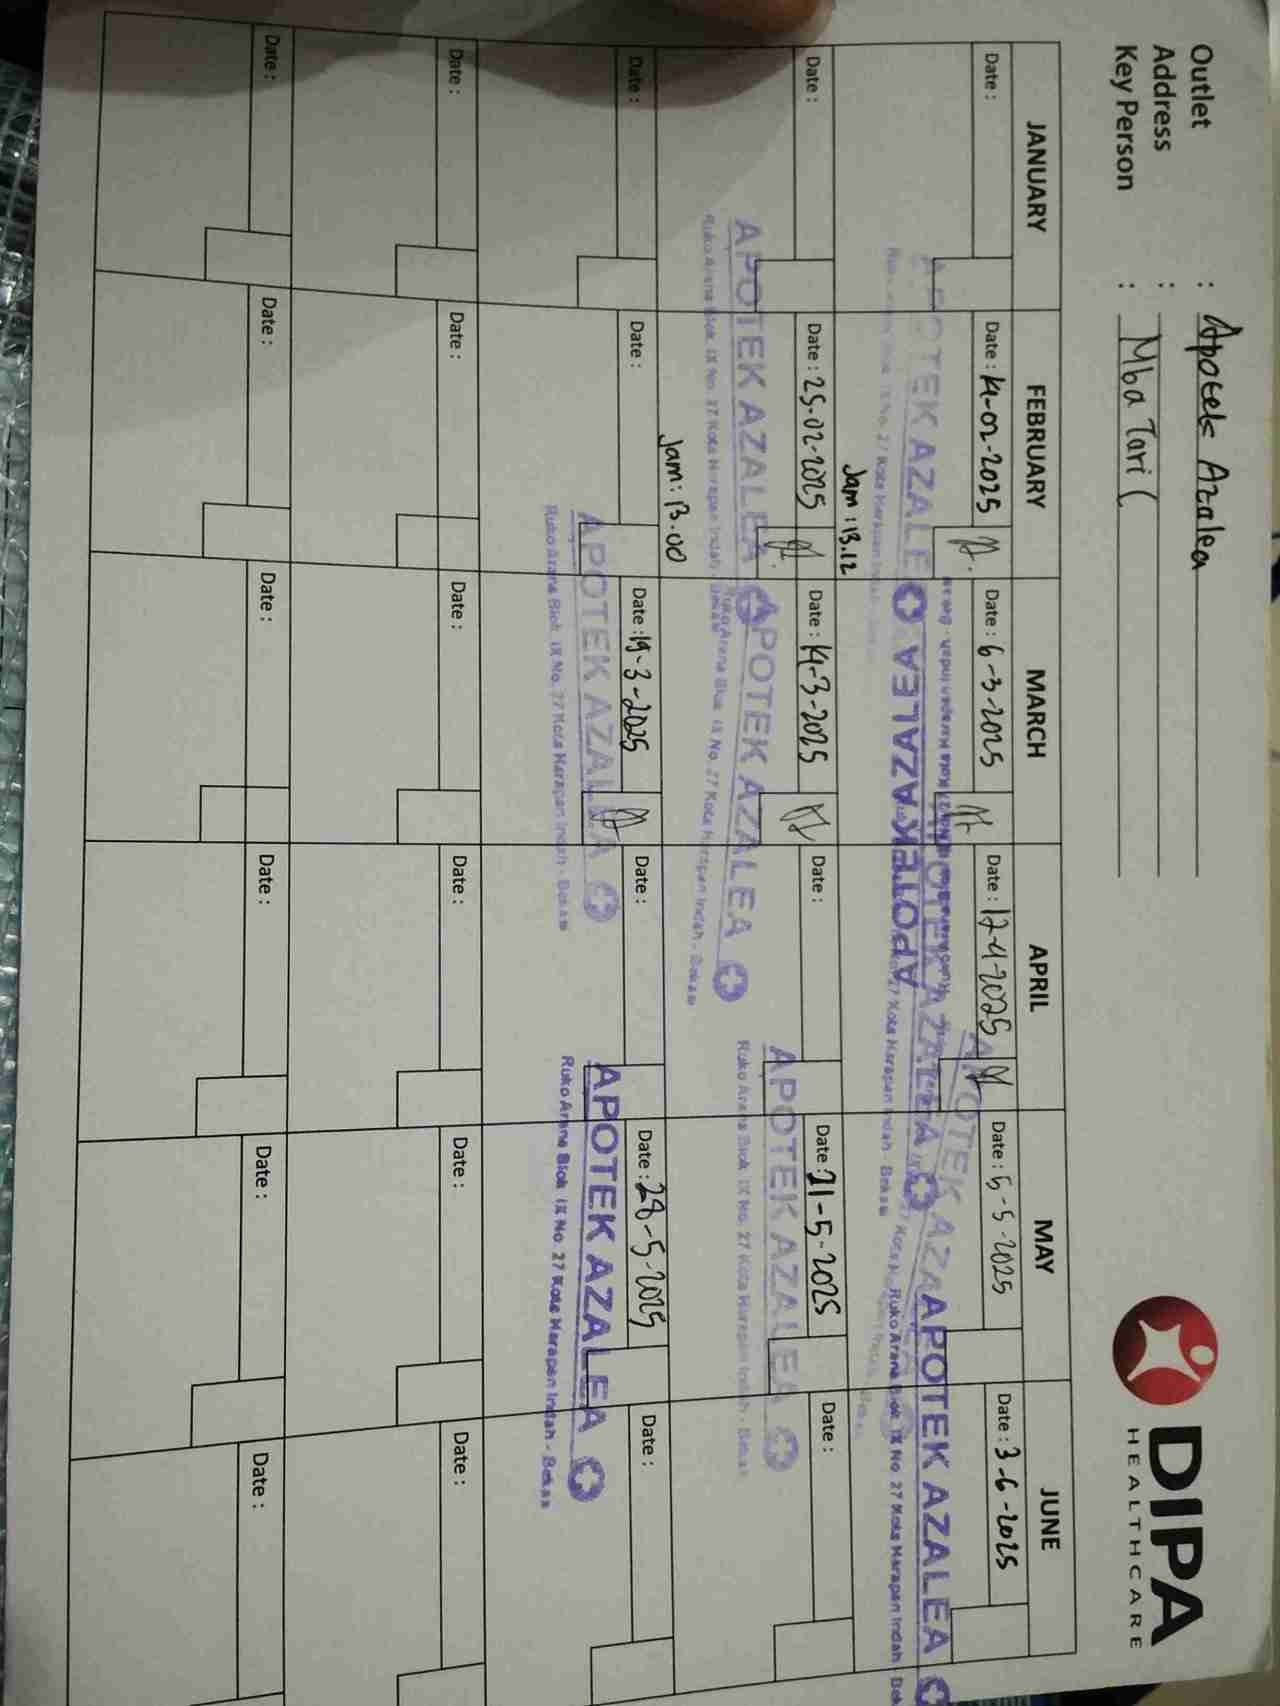 DIPA
HEALTHCARE
Outlet : Apotek Azalea
Address :
Key Person : Mba Tari (
JANUARY FEBRUARY MARCH APRIL MAY JUNE
Date : Date : 14-02-2025 Date : 6-3-2025 Date : 17-4-2025 Date : 5-5-2025 Date : 3-6-2025
APOTEK AZALE APOTEK AZALEA APOTEK AZALEA APOTEK AZA APOTEK AZALEA
Ruko Arana Blok IX No. 27 Kota Harapan Indah - Bek
Jam : 13.12
Date : Date : 25-02-2025 Date : 14-3-2025 Date : Date : 21-5-2025 Date :
APOTEK AZALEA APOTEK AZALEA APOTEK AZALEA
Ruko Arana Blok IX No. 27 Kota Harapan Indah - Bekasi Ruko Arana Blok IX No. 27 Kota Harapan Indah - Bekasi Ruko Arana Blok IX No. 27 Kota Harapan Indah - Bekasi
Jam : 13.00
Date : Date : Date : 19-3-2025 Date : Date : 28-5-2025 Date :
APOTEK AZALEA APOTEK AZALEA
Ruko Arana Blok IX No. 27 Kota Harapan Indah - Bekasi Ruko Arana Blok IX No. 27 Kota Harapan Indah - Bekasi
Date : Date : Date : Date : Date : Date :
Date : Date : Date : Date : Date : Date :